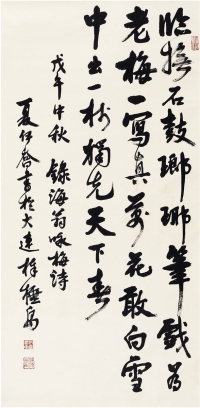 临抚石鼓琅琊笔戏为
老梅一写真万花敢向雪
中出一树独先天下春
戊午中秋 录海翁咏梅诗
夏任乔书于大连